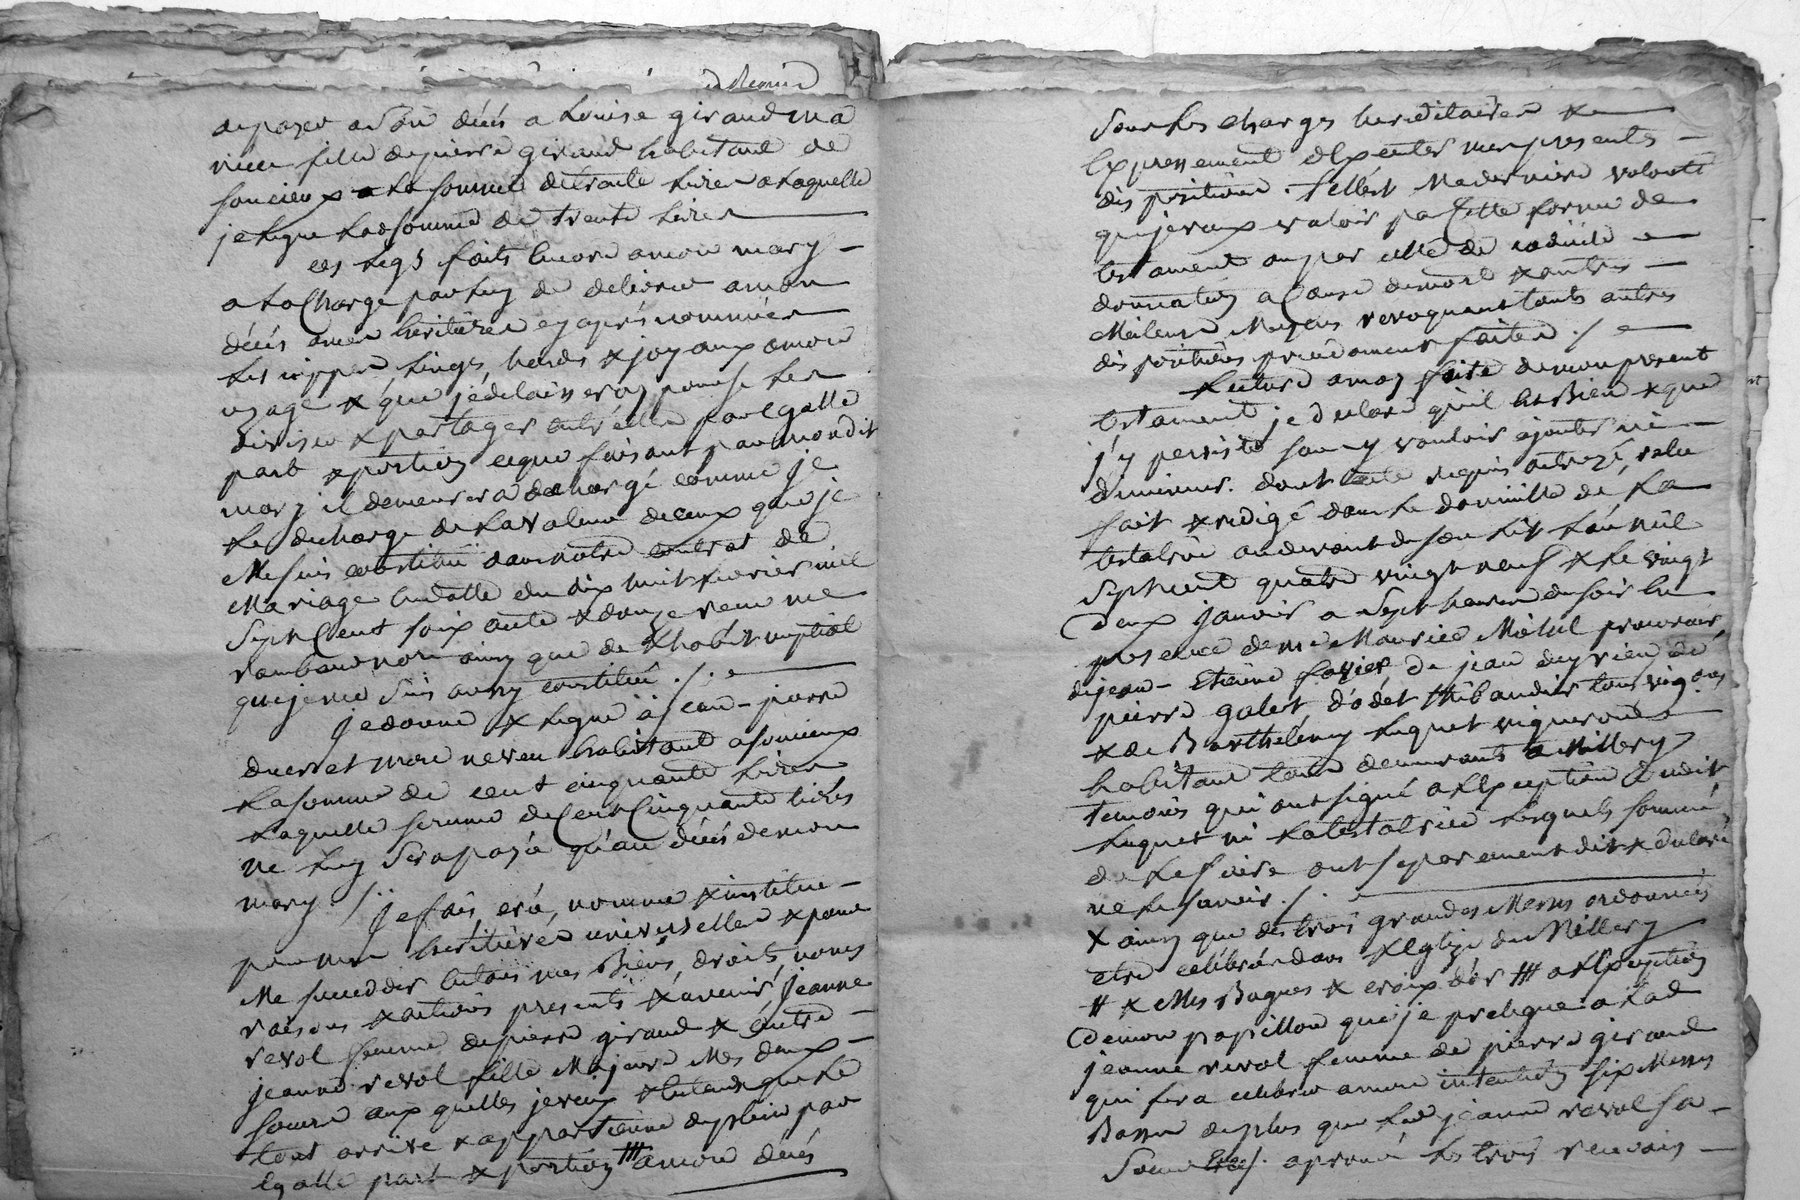 apayer a Son décés a Louise giraud ma
niece fille depierre giraud habitant de
soucieux la somme detrante Livres a Laquelle
je legue Lad somme de trente Livres
ces Legs faits Encore amon mary
a La Charge par Luy de delivrer amon
décés amer heritieres cy aprés nommées
Les nippes, Linges, hardes & joyaux amon
usage & que jédelaisseray pour se Les
diviser & partager entrélles par Egalle
part & portion ceque faisant par mondit
mary il demeurera déchargé comme je
Le decharge de La Valeur deceux que je
Me suis constitué dans notre contrat de
Mariage Endatte du dix huit fevrier mil
Sept Cent soixante & douze recu me
ainsy que de Lhabit nuptial
que je me suis aussy constitué ./.
Je donne & Legue a jean-pierre
mon neveu habitant a soucieux
La somme de cent cinquante Livres
Laquelle somme de Cent Cinquante Livres
ne Luy Sera payé qu'au décés demon
mary ./.
Je fais, créé, nomme & institue
pour mes heritieres universelles & pour
Me succeder Entous mes Biens, droits, noms
raisons & actions presents & avenir, Jeanne
revol femme depierre giraud & autre
jeanne revol fille Majeure Mes deux
sœurs aux quelles je veux & Entends que Le
tout arrive & appartienne deplein par
Egalle part & portion ### amon décés
Sous Les charges hereditaires &
Expressement dExecuter mes presents
dispositions. telle est Ma derniere volonté
que je veux valoir par Cette forme de
testament ou par celle de codicile
donnation a Cause demort & autres
Meilleurs Moyens revoquant touts autres
dispositions precedament faites ./.
Lecture amoy faite demon present
testament je declare qu'il Est Bien & que
j'y persiste sans y vouloir ajouter ni
diminuer. dont acte requis octroyé, relu
fait & redigé dans Le domicille de La
testatrice audevant de son Lit L'an mil
Septcent quatre vingt neuf & Le vingt
Deux Janvier a Sept heures du soir En
presence de me Maurice Michel procureur,
dejean - Etienne favier de jean deyrieu de
pierre galest d'odet thibaudier tous vignons
& de Barthelemy Luquet vigneron
habitant tous demeurants a Millery
temoins qui ont signé a LException dudit
Luquet ni La testatrice Lesquels sommés
de Le faire ont separement dit & declaré
ne Le savoir ./.
X ainsy que des trois grandes Messes ordonnées
etre celébrées dans LEglize de Millery
# & Mes Bagues & croix d'or ### a LException
Demon papillon que je prelegue a Lad
jeanne revol femme de pierre giraud
qui fera celebrer amon intention six Messes
Basses deplus que Lad jeanne revol sa
Sœur ./. aprouvé Les trois renvois